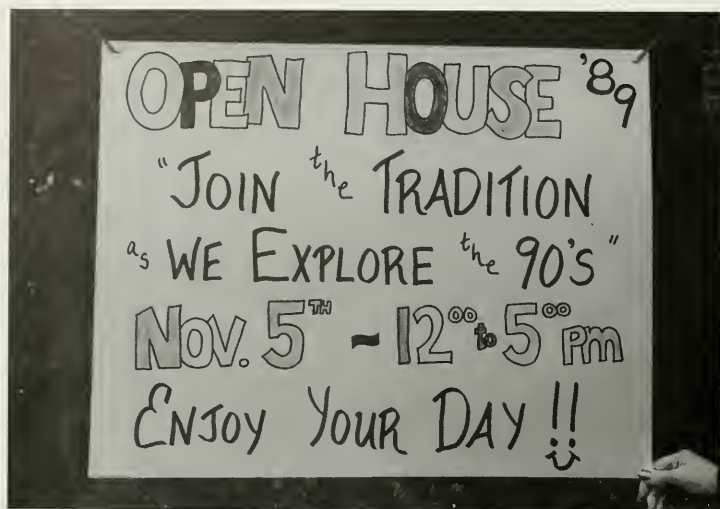 OPEN HOUSE '89
"JOIN the TRADITION
as WE EXPLORE the 90's"
NOV. 5TH ~ 1200 to 500 pm
ENJOY YOUR DAY !!